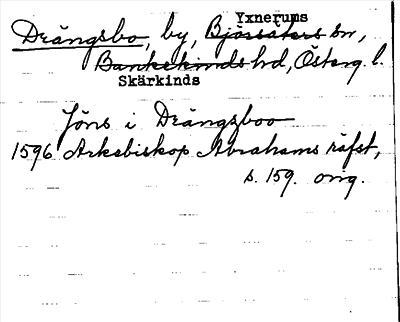 Yxnerums
Drängsbo, by, Björsäters sn,
Bankekinds hd, Österg. l.
Skärkinds
Jöns i Drängzboo
1596 Ärkebiskop Abrahams räfst,
s. 159. orig.